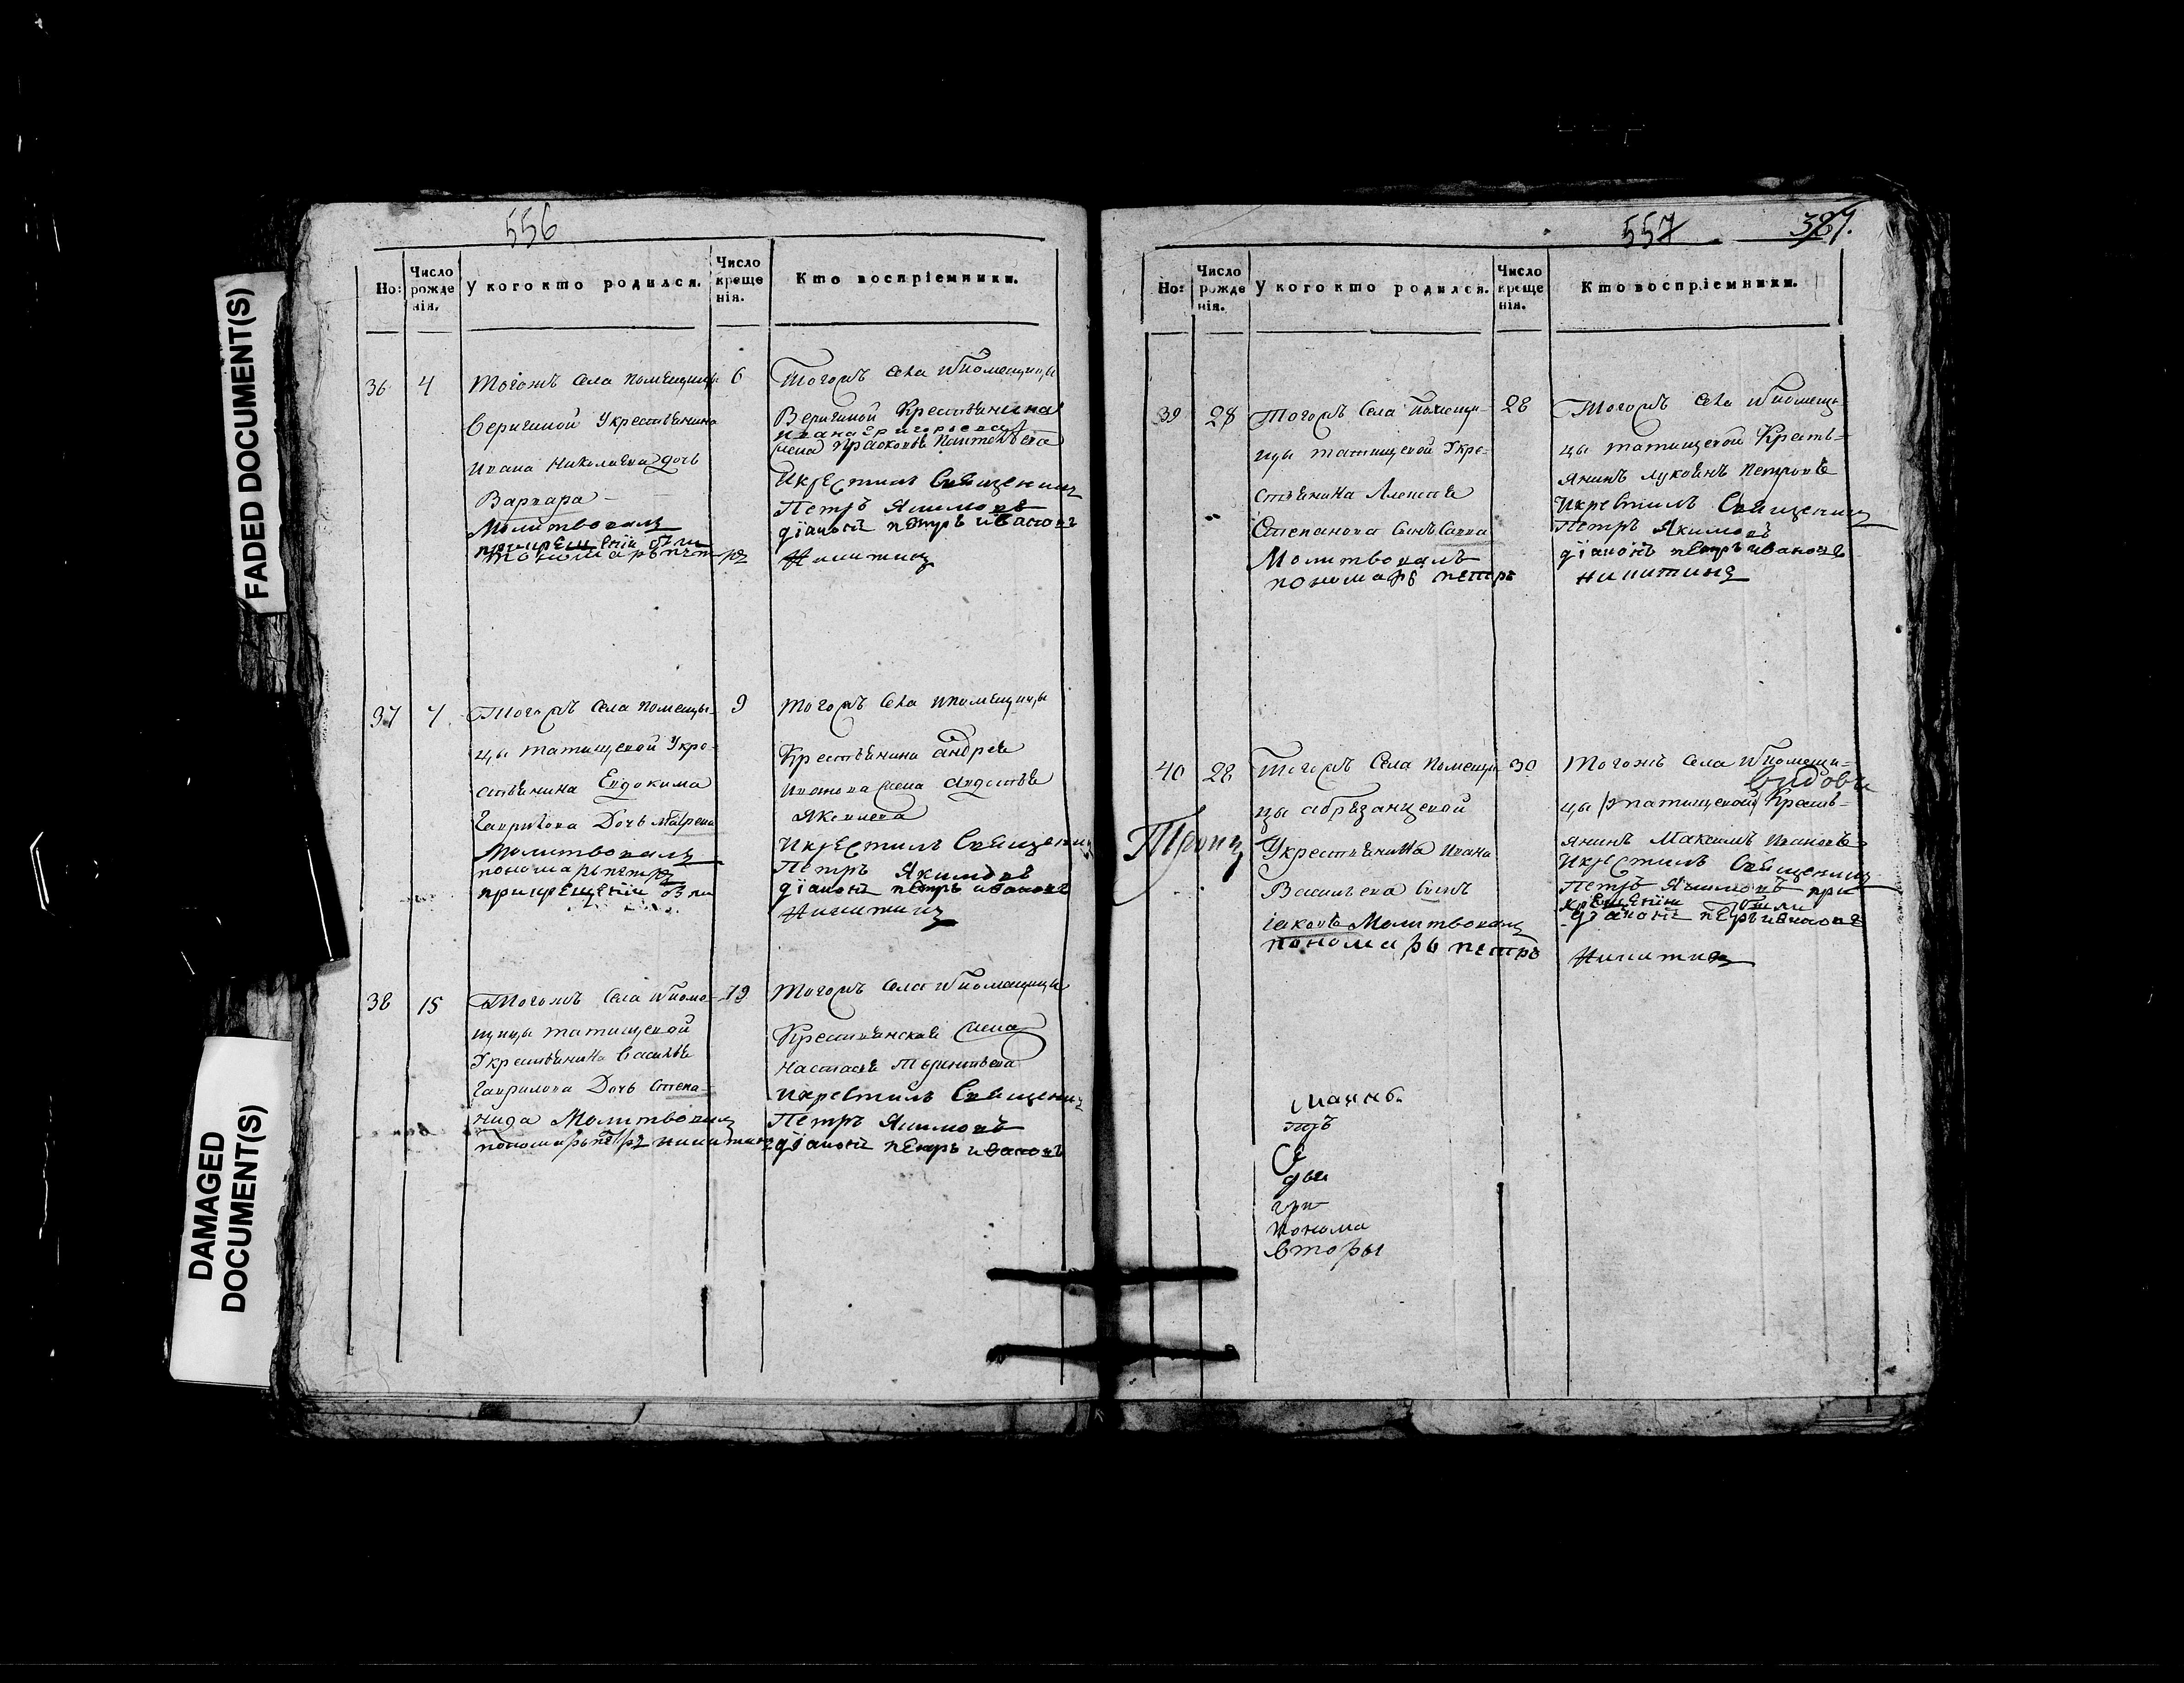 FADED DOCUMENT(S)
DAMAGED
DOCUMENT(S)
556
Но:
Число
рожде
нія.
У кого кто родился.
Число
креще
нія.
Кто воспріемники.
36
4
Тогожъ села помещицы
Веригиной Укрестьянина
Ивана Николаева дочь
Варвара
Молитвовалъ
прикрещенiи были
пономарь петръ
6
Тогожъ села ипомещицы
Веригиной Крестьянина
ивана григорьева
жена Прасковья Пантелѣева
Икрестилъ Священникъ
Петръ Якимовъ
дiаконъ петръ ивановъ
Никитинъ
37
7
Тогожъ села помещи-
цы татищевой Укре-
стьянина Евдокима
Гаврилова Дочь Матрена
Молитвовалъ
пономарь петръ
прикрещенiи были
9
Тогожъ села ипомещицы
Крестьянина андрея
жена авдотья
Икрестилъ Священникъ
Петръ Якимовъ
дiаконъ петръ ивановъ
Никитинъ
38
15
Тогожъ села ипоме-
щицы татищевой
Укрестьянина василья
Гаврилова Дочь степа-
нида Молитвовалъ
пономарь петръ никитинъ
19
Тогожъ села ипомещицы
Крестьянская жена
настасья терентьева
икрестилъ Священникъ
Петръ Якимовъ
дiаконъ петръ ивановъ
557
Но:
Число
рожде
нія.
У кого кто родился.
Число
креще
нія.
Кто воспріемники.
39
28
Тогожъ села помещи-
цы татищевой Укре-
стьянина Алексея
Степанова сынъ савва
Молитвовалъ
пономарь петръ
28
Тогожъ села ипомещи-
цы татищевой Кресть-
янинъ лукоянъ петровъ
Икрестилъ Священникъ
Петръ Якимовъ
дiаконъ петръ ивановъ
никитинъ
40
28
Тогожъ села помещи
цы абрязанцевой
Укрестьянина ивана
Васильева сынъ
iаковъ Молитвовалъ
пономарь петръ
30
Тогожъ села ипомещи-
цы татищевой Кресть-
янинъ Максимъ ивановъ
Икрестилъ Священникъ
Петръ Якимовъ при
крещенiи были
дiаконъ петръ ивановъ
Никитинъ
Троиц
гри
понома
вторы